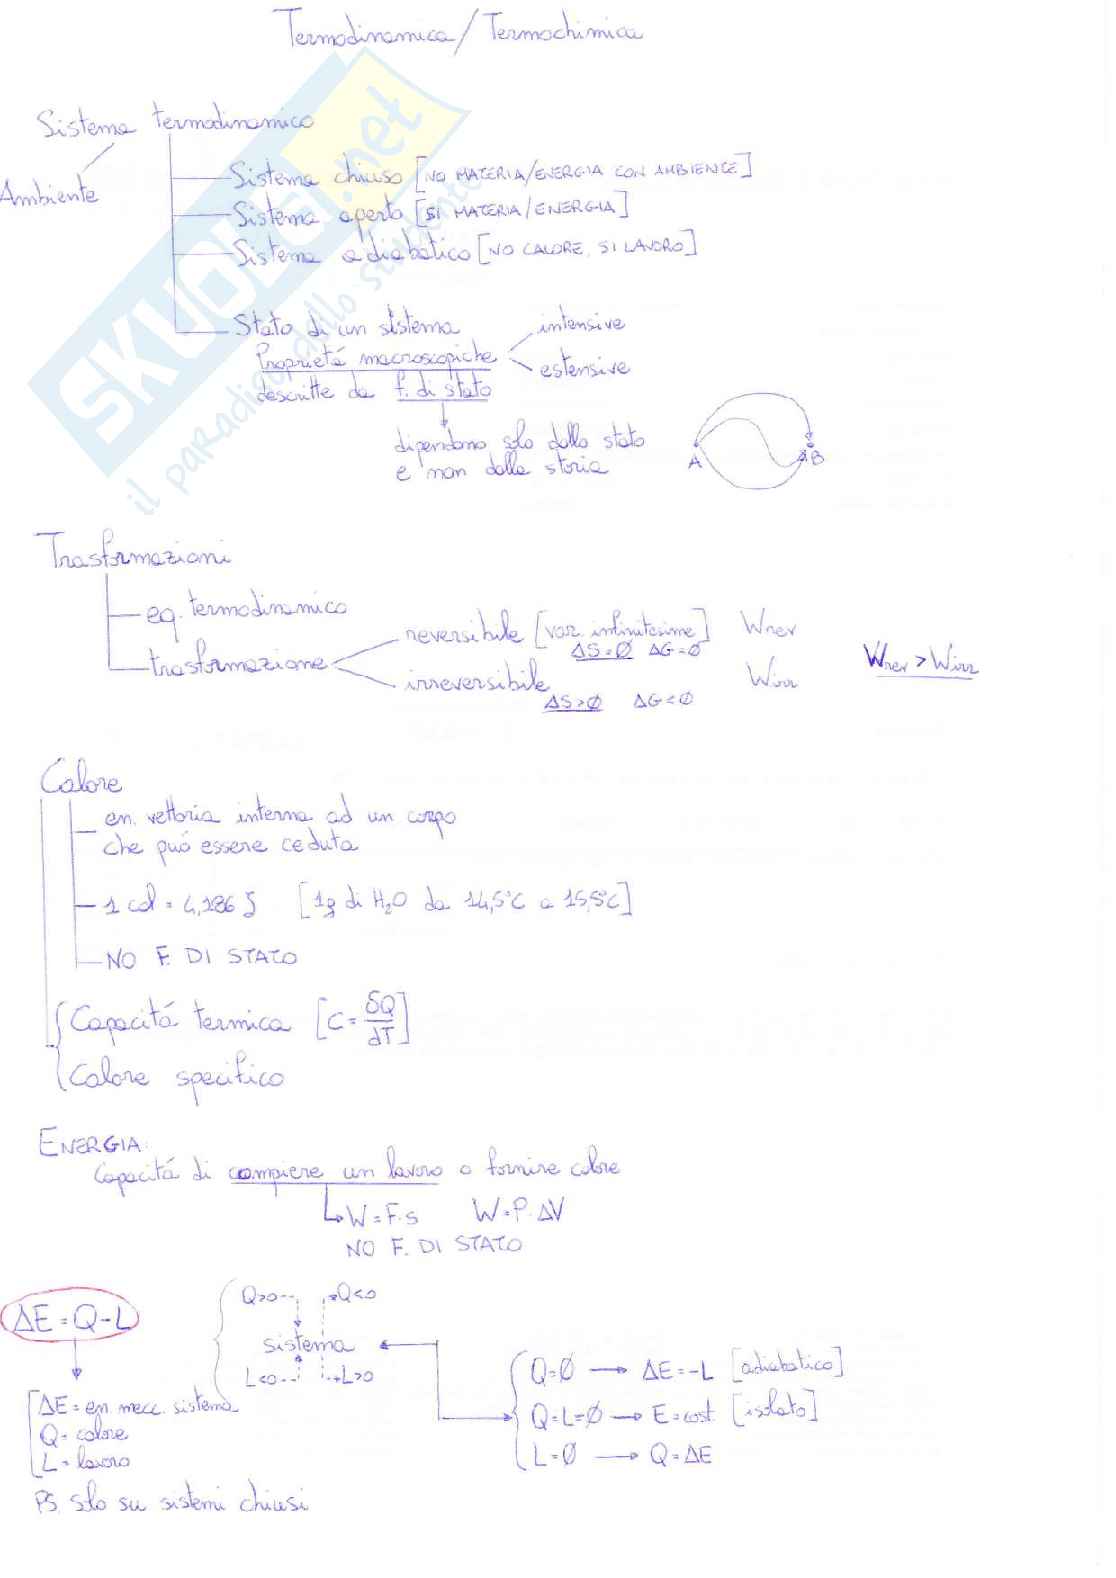 Termodinamica / Termochimica
Sistema termodinamico
Ambiente
Sistema chiuso [NO MATERIA/ENERGIA CON AMBIENTE]
Sistema aperto [SI MATERIA/ENERGIA]
Sistema adiabatico [NO CALORE, SI LAVORO]
Stato di un sistema
Proprietá macroscopiche
intensive
estensive
descritte da f. di stato
dipendono solo dallo stato
e non dalla storia
A
B
SKUOLA.net
il paradiso dello studente
Trasformazioni
eq. termodinamico
trasformazione
reversibile [var. infinitesime] Wrev
ΔS=Ø ΔG=Ø
irreversibile Wirr
ΔS>Ø ΔG<Ø
Wrev > Wirr
Calore
en. vettoria interna ad un corpo
che puó essere ceduta
1 cal = 4,186 J [1g di H₂O da 14,5°C a 15,5°C]
NO F. DI STATO
Capacitá termica [C = δQ/dT]
Calore specifico
ENERGIA:
Capacitá di compiere un lavoro o fornire calore
W = F·s W = P·ΔV
NO F. DI STATO
ΔE = Q-L
Q>0 Q<0
sistema
L<0 L>0
ΔE = en. mecc. sistema
Q = calore
L = lavoro
PS. solo su sistemi chiusi
Q=Ø → ΔE=-L [adiabatico]
Q=L=Ø → E=cost. [isolato]
L=Ø → Q=ΔE